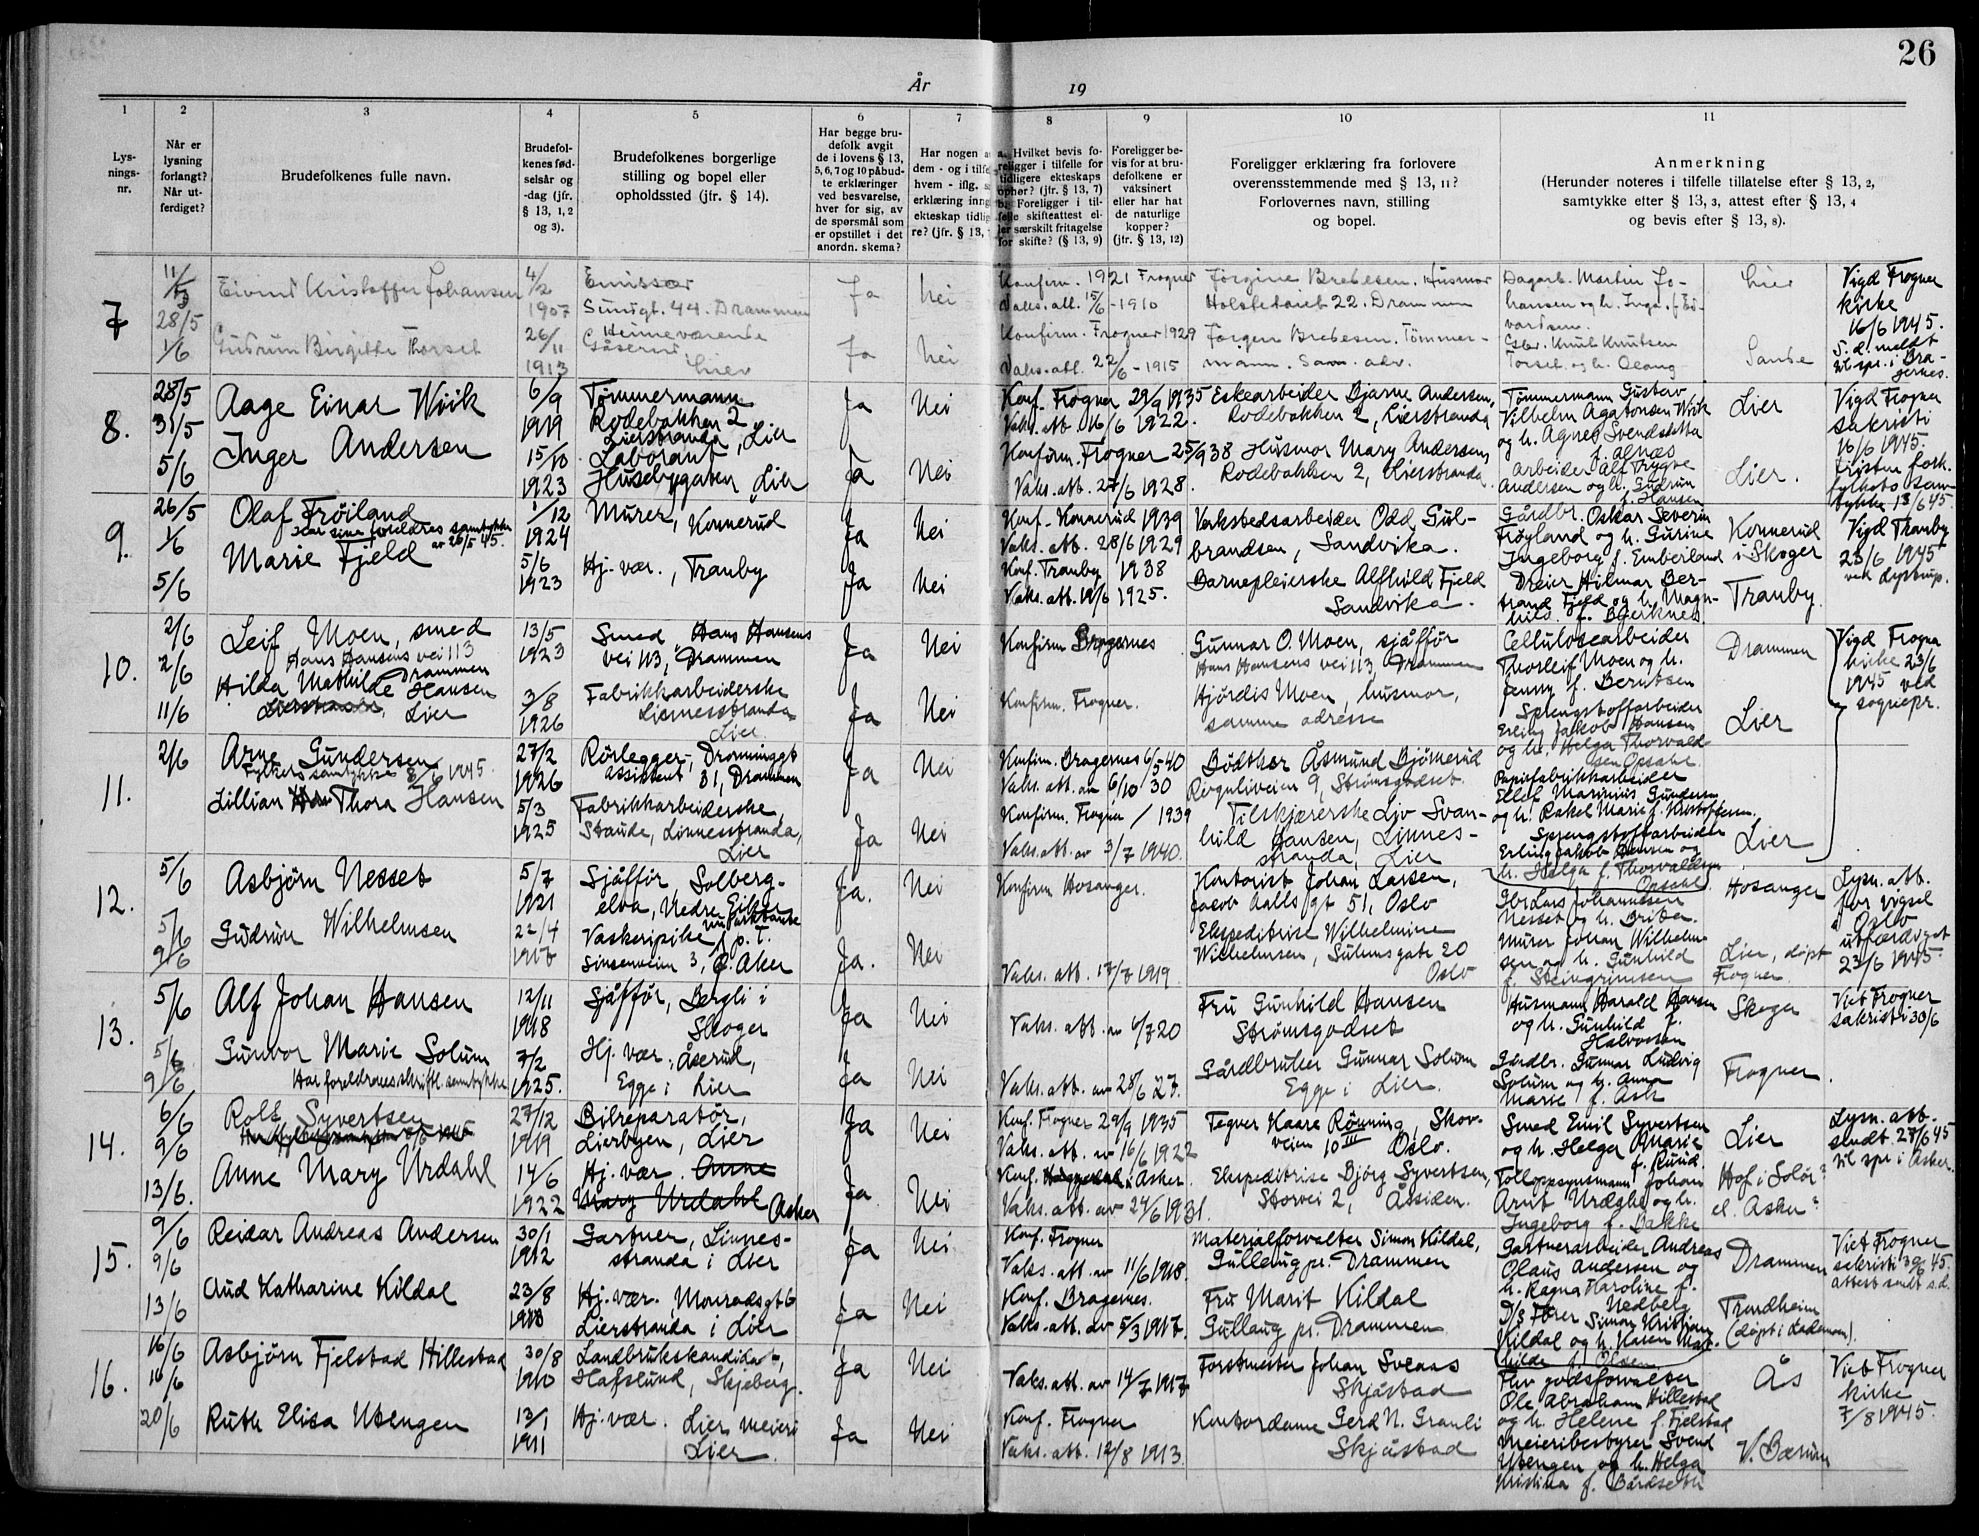 26
År
19
1
2
3
4
5
6
7
8
9
10
11
Lys-
nings-
nr.
Når er
lysning
forlangt?
Når ut-
ferdiget?
Brudefolkenes fulle navn.
Brudefol-
kenes fød-
selsår og
-dag (jfr.
§ 13, 1, 2
og 3).
Brudefolkenes borgerlige
stilling og bopel eller
opholdssted (jfr. § 14).
Har begge bru-
defolk avgit
de i lovens § 13,
5, 6, 7 og 10 påbud-
te erklæringer
ved besvarelse,
hver for sig, av
de spørsmål som
er opstillet i det
anordn. skema?
Har nogen a
dem - og i tilfe
hvem - iflg. s
erklæring inng
ekteskap tidlig
re? (jfr. § 13,
Hvilket bevis fo-
religger i tilfelle for
tidligere ekteskaps
ophør? (jfr. § 13, 7)
og: Foreligger i til-
felle skifteattest el-
ler særskilt fritagelse
for skifte? (§ 13, 9)
Foreligger be-
vis for at bru-
defolkene er
vaksinert
eller har hat
de naturlige
kopper?
(jfr. § 13, 12)
Foreligger erklæring fra forlovere
overensstemmende med § 13, 11?
Forlovernes navn, stilling
og bopel.
Anmerkning
(Herunder noteres i tilfelle tillatelse efter § 13, 2,
samtykke efter § 13, 3, attest efter § 13, 4
og bevis efter § 13, 8).
7
28/5
1/6
Eivind Kristoffer Johansen
4/2
1907
Emissær
Sundgt. 44. Drammen
Ja
Nei
Konfirm. 1921 Frogner
Vaks. att. 15/6 - 1910
Jørgine Brebesen. Husmor
Holstetoret 22. Drammen
Dagarb. Martin Jo-
hansen og h. Inga f. Ed-
vardsen.
Lier
Vigd Frogner
kirke
16/6 1945.
S. d. meldt
til spr. i Bra-
gernes.
Gudrun Birgitte Thorset
26/11
1913
Heimeværende
Lier
Ja
Nei
Konfirm. Frogner 1929
Vaks. att. 22/6 - 1915
Jørgen Brebesen. Tømmer-
mann. Sam. adr.
Gbr. Knut Knutsen
Torset og h. Olaug
Sande
8.
28/5
31/5
5/6
Aage Einar Wiik
6/9
1919
Tømmermann
Rodebakken 2
Lierstranda, Lier
Ja
Nei
Konf. Frogner 29/9 1935
Vaks. att. 16/6 1922.
Eskearbeider Bjarne Andersen,
Rodebakken 2, Lierstranda
Tømmermann Gustav
Vilhelm Agatonsen Wiik
og h. Agnes Svendsdatta
f. Alnæs
Lier
Vigd Frogner
sakristi
16/6 1945.
Inger Andersen
15/10
1923
Laborant
Husebygaten, Lier
Ja
Nei
Konfirm. Frogner 25/9 38
Vaks. att. 27/6 1928.
Husmor Mary Andersen,
Rodebakken 2, Lierstranda
Arbeider Alf Trygve
Andersen og h. Gudrun
f. Hansen
Lier.
13/6 45.
9.
26/5
1/6
5/6
Olaf Frøiland
Har sine foreldres samtykke
av 26/5 45.
1/12
1924
Murer, Konnerud
Ja
Nei
Konf. Konnerud 1939
Vaks. att. 28/6 1929
Verkstedsarbeider Odd Gul-
brandsen, Sandvika.
Gårdbr. Oskar Severin
Frøyland og h. Gurine
Ingeborg f. Emberland
Konnerud
i Skoger
Vigd Tranby
23/6 1945
ved Lystrup.
Marie Fjeld
5/6
1923
Hj. vær., Tranby
Ja
Nei
Konf. Tranby 1938
Vaks. att. 19/6 1925.
Barnepleierske Alfhild Fjeld
Sandvika.
Dreier Hilmar Ber-
trand Fjeld og h. Magn-
hild f. Bjerknes
Tranby.
10.
2/6
2/6
11/6
Leif Moen, smed
Hans Hansens vei 113
Drammen
13/5
1923
Smed, Hans Hansens
vei 113, Drammen
Ja
Nei
Konfirm Bragernes
Gunnar O. Moen, sjåffør
Hans Hansens vei 113, Drammen
Cellulosearbeider
Thorleif Moen og h.
Jenny f. Berntsen
Drammen
Vigd Frogner
kirke 23/6
1945 ved
sognepr.
Hilda Mathilde Hansen
Lierstranda, Lier
3/8
1926
Fabrikkarbeiderske
Linnesstranda
Lier
Ja
Nei
Konfirm. Frogner.
Hjørdis Moen, husmor,
samme adresse
Sprengstoffarbeider
Erling Jakob Hansen
og h. Helga Thorvald-
sen Opsahl
Lier
11.
2/6
Arne Gundersen
Fylkets samtykke 8/6 1945.
27/2
1926
Rørlegger-, Dronninggt
assistent 31, Drammen
Ja
Nei
Konfirm. Bragernes 6/5 40
Vaks. att. av 6/10 30
Bødtker Åsmund Bjønnerud
Ringuliveien 9, Strømsgodset
Papirfabrikkarbeider
Ellef Marinius Gundersen
og h. Rakel Marie f. Kristoffersen.
Lillian Thora Hansen
5/3
1925
Fabrikkarbeiderske,
Staude, Linnesstranda,
Lier
Ja
Nei
Konfirm. Frogner / 1939
Vaks. att. av 3/7 1940.
Tilskjærerske Liv Svan-
hild Hansen, Linnes-
stranda, Lier
Sprengstoffarbeider
Erling Jakob Hansen og
h. Helga f. Thorvaldsen
Opsahl
Lier
12.
5/6
5/6
9/6
Asbjørn Nesset
5/7
1921
Sjåffør, Solberg-
elva, Nedre Eiker
Ja.
Nei
Konfirm Hosanger.
Kontorist Johan Larsen,
Jacob Aalls gt 51, Oslo
Gbr Lars Johannesen
Nesset og h. Brita.
Hosanger
Lysn. att.
for vigsel
i Oslo
utferdiget
23/6 1945.
Gudrun Wilhelmsen
22/4
1917
Vaskeripike, p. t.
Sinsenveien 3, Ø. Aker
Ja.
Nei
Vaks. att. 17/7 1919.
Ekspeditrise Wilhelmine
Wilhelmsen, Suhmsgate 20
Oslo
Murer Johan Wilhelm-
sen og h. Gunhild
f. Steingrimsen
Lier, døpt
Frogner
13.
5/6
5/6
9/6
Alf Johan Hansen
12/11
1918
Sjåffør, Bergli i
Skoger
Ja
Nei
Vaks. att. av 6/7 20
Fru Gunhild Hansen
Strømsgodset
Husmann Harald Hansen
og h. Gunhild f.
Halvorsen
Skoger
Viet Frogner
sakristi 30/6
Gunvor Marie Solum
Har foreldrenes skriftl. samtykke
7/2
1925.
Hj. vær., Åserud,
Egge i Lier
Ja
Nei
Vaks. att. av 28/6 27.
Gårdbruker Gunnar Solum
Egge i Lier.
Gårdbr. Gunnar Ludvig
Solum og h. Anna
Marie f. Ask
Frogner.
14.
6/6
9/6
13/6.
Rolf Syvertsen
27/12
1919
Bilreparatør,
Lierbyen, Lier
Ja
Nei
Konf. Frogner 29/9 1935
Vaks. att. av 16/6 1922
Tegner Kaare Rønning, Skov-
veien 10 III Oslo.
Smed Emil Syvertsen
og h. Helga Marie
f. Ruud.
Lier
Lysn. att.
sendt 27/6 45
til spr i Asker.
Anne Mary Urdahl
14/6
1922
Hj. vær. Anne
Mary Urdahl Asker
Ja
Nei
Konf. Asker.
Vaks. att. av 24/6 1931.
Ekspeditrise Bjørg Syvertsen,
Storvei 2, Åssiden.
Tolloppsynsmann Johan
Arnt Urdahl og h.
Ingeborg f. Bakke
Hof i Solør?
el. Asker?
15.
9/6
9/6
13/6
Reidar Andreas Andersen
30/1
1912
Gartner, Linnes-
stranda i Lier
Ja
Nei
Konf. Frogner
Vaks. att. av 11/6 1918.
Materialforvalter Simon Kildal,
Gullaug pr. Drammen
Gartnerarbeider Andreas
Olaus Andersen og
h. Ragna Karoline f.
Nedberg
Drammen
Viet Frogner
sakristi 30/6 45.
attest sendt s.d.
Aud Katharine Kildal
23/8
Hj. vær. Monradsgt 6
Lierstranda i Lier
Ja
Nei
Konf. Bragernes.
Vaks. att. av 5/3 1917.
Fru Marit Kildal
Gullaug pr. Drammen
Simon Kristian
Kildal og h. Karen Mat-
hilde f. Olsen
Trondheim
(døpt i Lademoen).
16.
16/6
16/6
20/6
Asbjørn Fjelstad Hillestad
30/8
1910
Landbrukskandidat,
Hafslund, Skjeberg.
Ja
Nei
Vaks. att. av 14/7 1917
Forstmester Johan Sveaas
Skjåstad
Fhv godsforvalter
Ole Abraham Hillestad
og h. Helene f. Fjelstad
Ås
Viet Frogner
kirke
7/8 1945.
Ruth Elisa Utengen
13/1
1911
Hj. vær. Lier meieri
Lier.
Ja
Nei
Konf. Frogner
Vaks. att. 12/8 1913.
Kontordame Gerd N. Granli
Skjåstad
Meieribestyrer Svend
Utengen og h. Helga
Kristina f. Bårdseth
V. Bærum